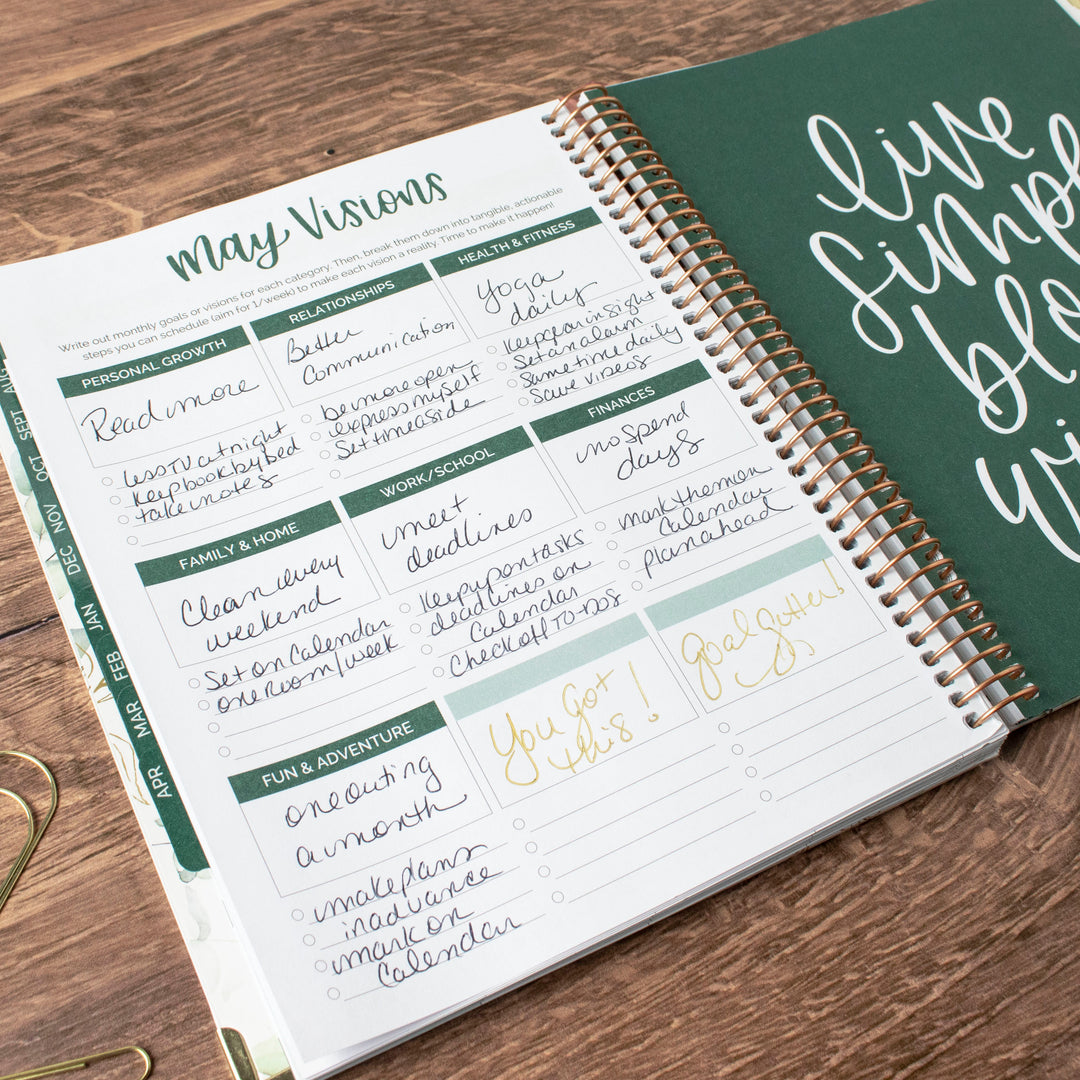 May Visions
Write out monthly goals or visions for each category. Then, break them down into tangible, actionable
steps you can schedule (aim for 1/week) to make each vision a reality. Time to make it happen!
PERSONAL GROWTH
Read more
less TV at night
keep book by bed
take notes
RELATIONSHIPS
Better
Communication
be more open
express myself
Set time aside
HEALTH & FITNESS
Yoga
daily
Keep gear in sight
Set an alarm
Same time daily
Save videos
FAMILY & HOME
Clean every
weekend
Set on Calendar
one room/week
WORK/SCHOOL
meet
deadlines
Keep up on tasks
deadlines on
Calendar
Check off TO-DOs
FINANCES
no Spend
days
mark them on
Calendar
plan ahead
FUN & ADVENTURE
one outing
a month
make plans
in advance
mark on
Calendar
You Got
this!
Goal Getter!
AUG
SEPT
OCT
NOV
DEC
JAN
FEB
MAR
APR
live